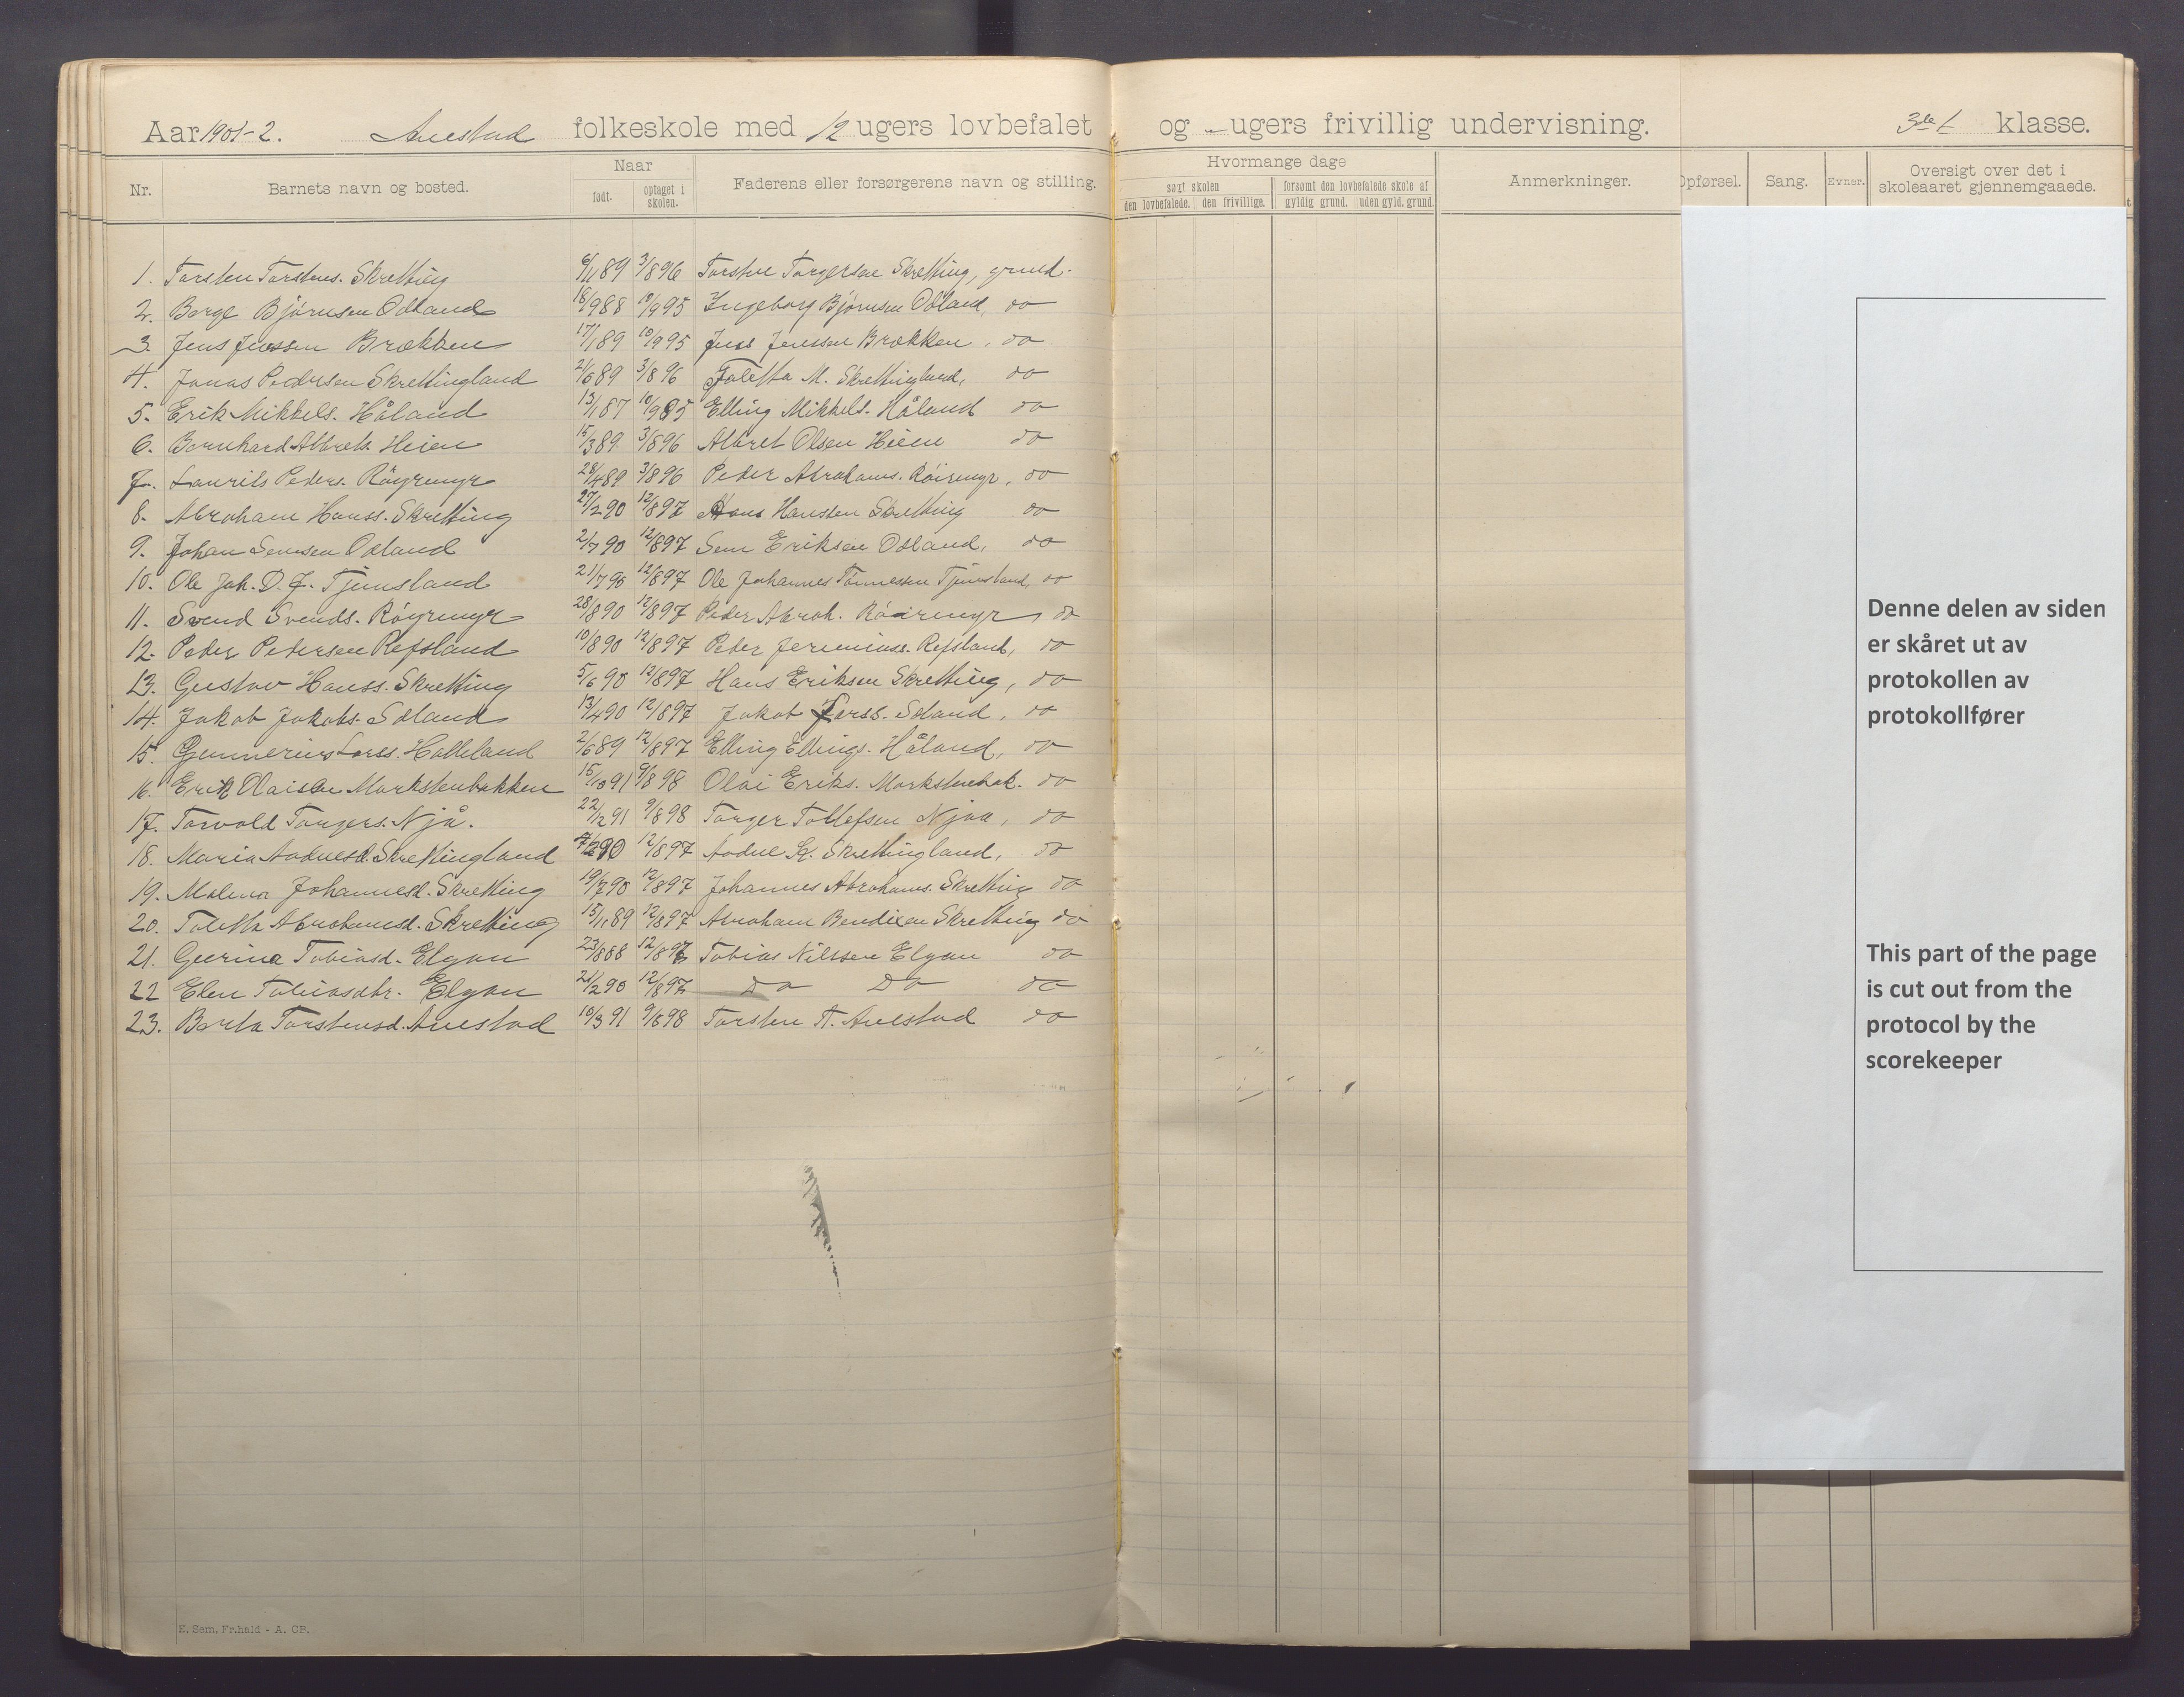 Aar 1901-2. Auestad folkeskole med 12 ugers lovbefalet og - ugers frivillig undervisning. 3de klasse.
Nr. Barnets navn og bosted. Naar født. optaget i skolen. Faderens eller forsørgerens navn og stilling. Hvormange dage søgt skolen den lovbefalede. den frivillige. forsømt den lovbefalede skole af gyldig grund. uden gyld. grund. Anmerkninger. Opførsel. Sang. Evner. Oversigt over det i skoleaaret gjennemgaaede.
1. Torsten Torstens. Skretting 6/11 89 3/8 96 Torsten Torgersen Skretting, grund.
2. Berge Bjørnsen Odland 18/9 88 10/9 95 Ingeborg Bjørnsen Odland, do
3. Jens Jenssen Brækken 17/1 89 10/9 95 Jens Jenssen Brækken, do
4. Jonas Pedersen Skrettingland 2/6 89 3/8 96 Taletta M. Skrettingland, do
5. Erik Mikkels. Håland 13/1 87 10/9 95 Elling Mikkels. Håland do
6. Bernhard Albrets. Heien 15/3 89 3/8 96 Albret Olsen Heien do
7. Laurits Peders. Röyrmyr 28/4 89 3/8 96 Peder Abrahams. Röirmyr, do
8. Abraham Hanss. Skretting 27/2 90 12/8 97 Hans Hanssen Skretting do
9. Johan Semsen Odland 2/7 90 12/8 97 Sem Eriksen Odland, do
10. Ole Joh. D. J. Tjemsland 21/7 90 12/8 97 Ole Johannes Tønnessen Tjemsland, do
11. Svend Svends. Röyrmyr 28/8 90 12/8 97 Peder Abrah. Röirmyr, do
12. Peder Pedersen Refsland 10/8 90 12/8 97 Peder Jeremiass. Refsland, do
13. Gustav Hanss. Skretting 5/6 90 12/8 97 Hans Eriksen Skretting, do
14. Jakob Jakobs. Soland 13/4 90 12/8 97 Jakob Larss. Soland, do
15. Gunnerius Larss. Holleland 2/6 89 12/8 97 Elling Ellings. Håland, do
16. Erik Olaisen Markstenbakken 15/10 91 9/8 98 Olai Eriks. Markstenbak. do
17. Torvald Torgers. Njå. 22/12 91 9/8 98 Torger Tollefsen Njaa, do
18. Maria Aadnesd. Skrettingland 7/2 90 12/8 97 Aadne Skrettingland, do
19. Malena Johannesd. Skretting 19/7 90 12/8 97 Johannes Abrahams. Skretting do
20. Taletta Abrahamsd. Skretting 15/11 89 12/8 97 Abraham Bendixen Skretting do
21. Gurina Tobiasd. Elgan 23/8 88 12/8 97 Tobias Nilssen Elgan do
22 Elen Tobiasdtr. Elgan 21/2 90 12/8 97 Do Do do
23. Berta Torstensd. Auestad 10/3 91 9/8 98 Torsten T. Auestad do
Denne delen av siden
er skåret ut av
protokollen av
protokollfører
This part of the page
is cut out from the
protocol by the
scorekeeper
E. Sem, Fr.hald - A. CP.